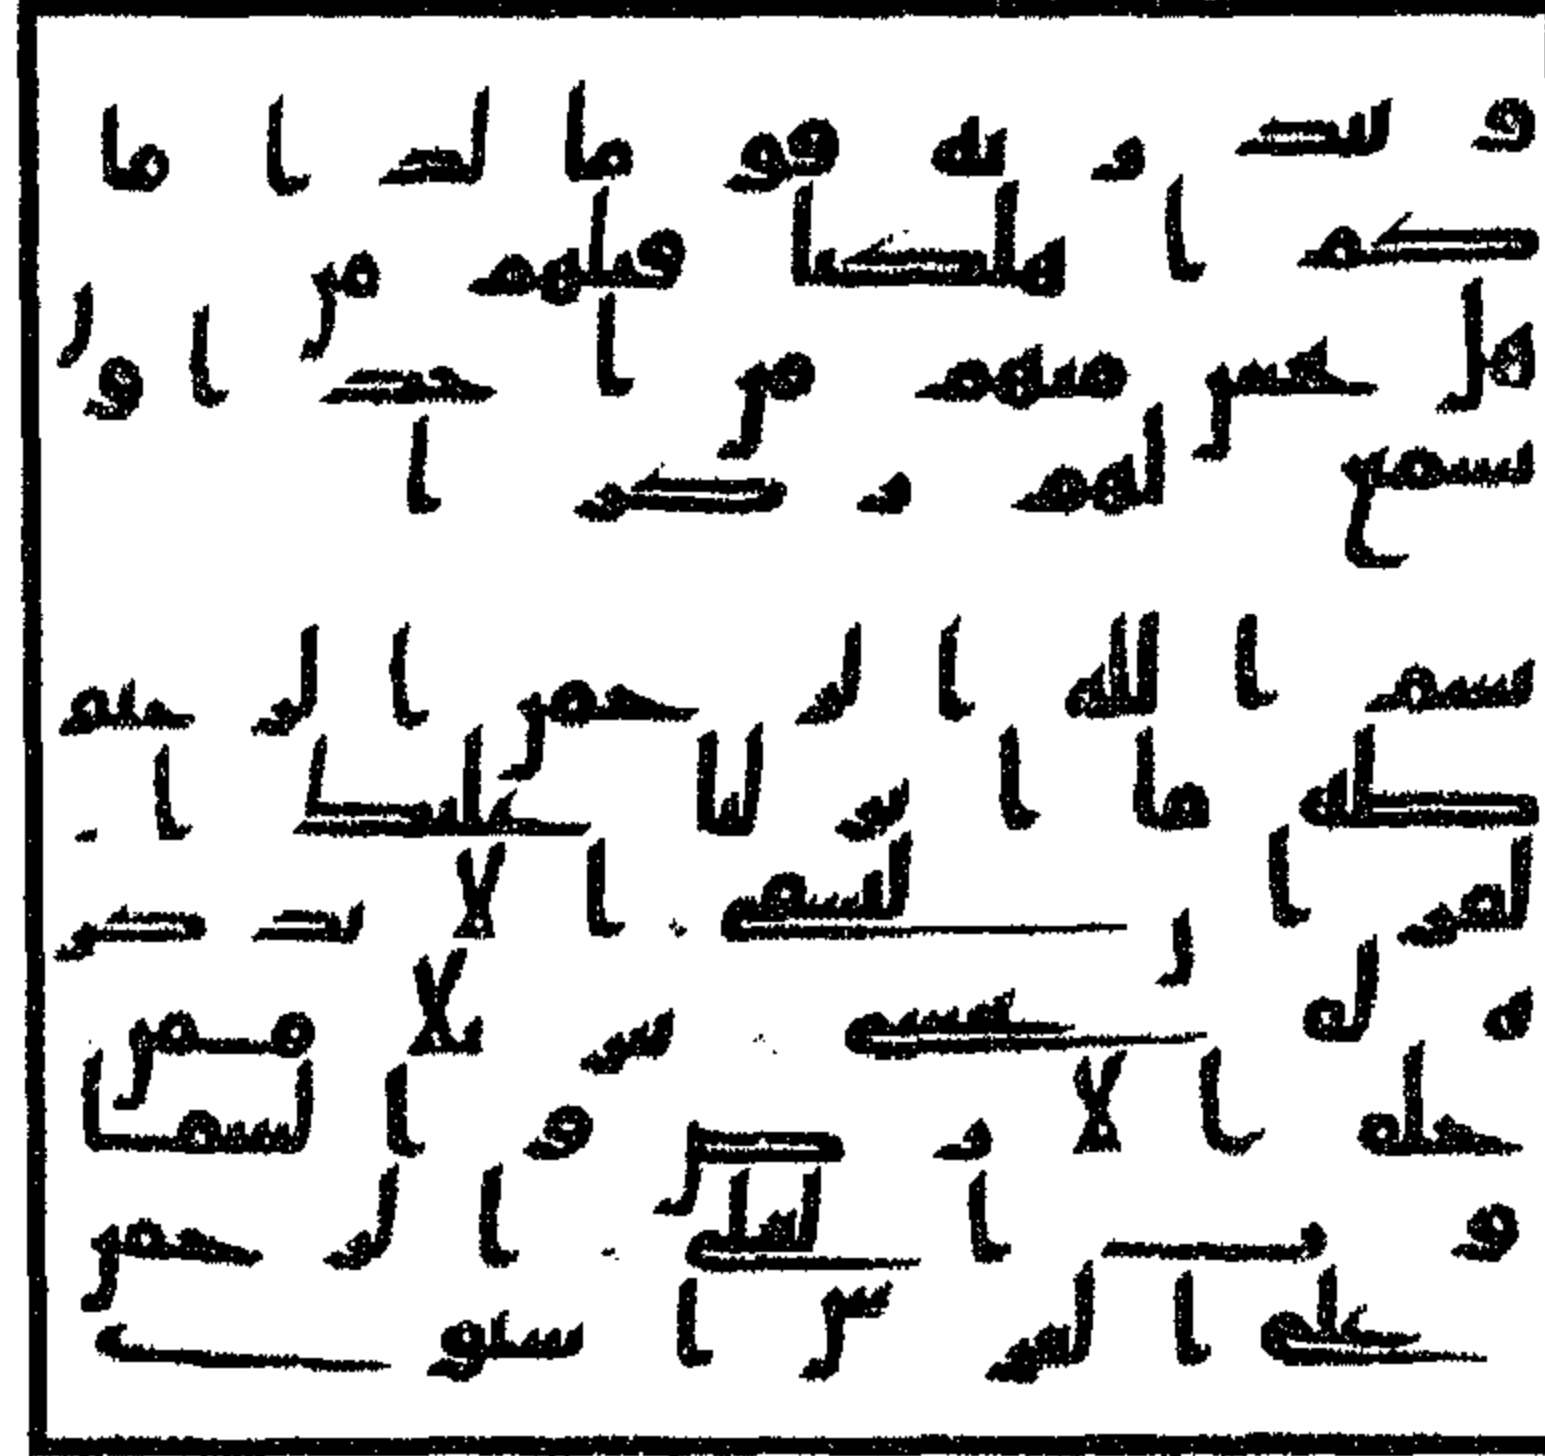 وتنذر به قوما لدا
كم اهلكنا قبلهم من
هل تحس منهم من احد او
تسمع لهم ركزا
بسم الله الرحمن الرحيم
طه ما انزلنا عليك ا
لقران لتشقى الا تذكر
ه لمن يخشى تنزيلا ممن
خلق الارض والسما
وت العلى الرحمن
على العرش استوى